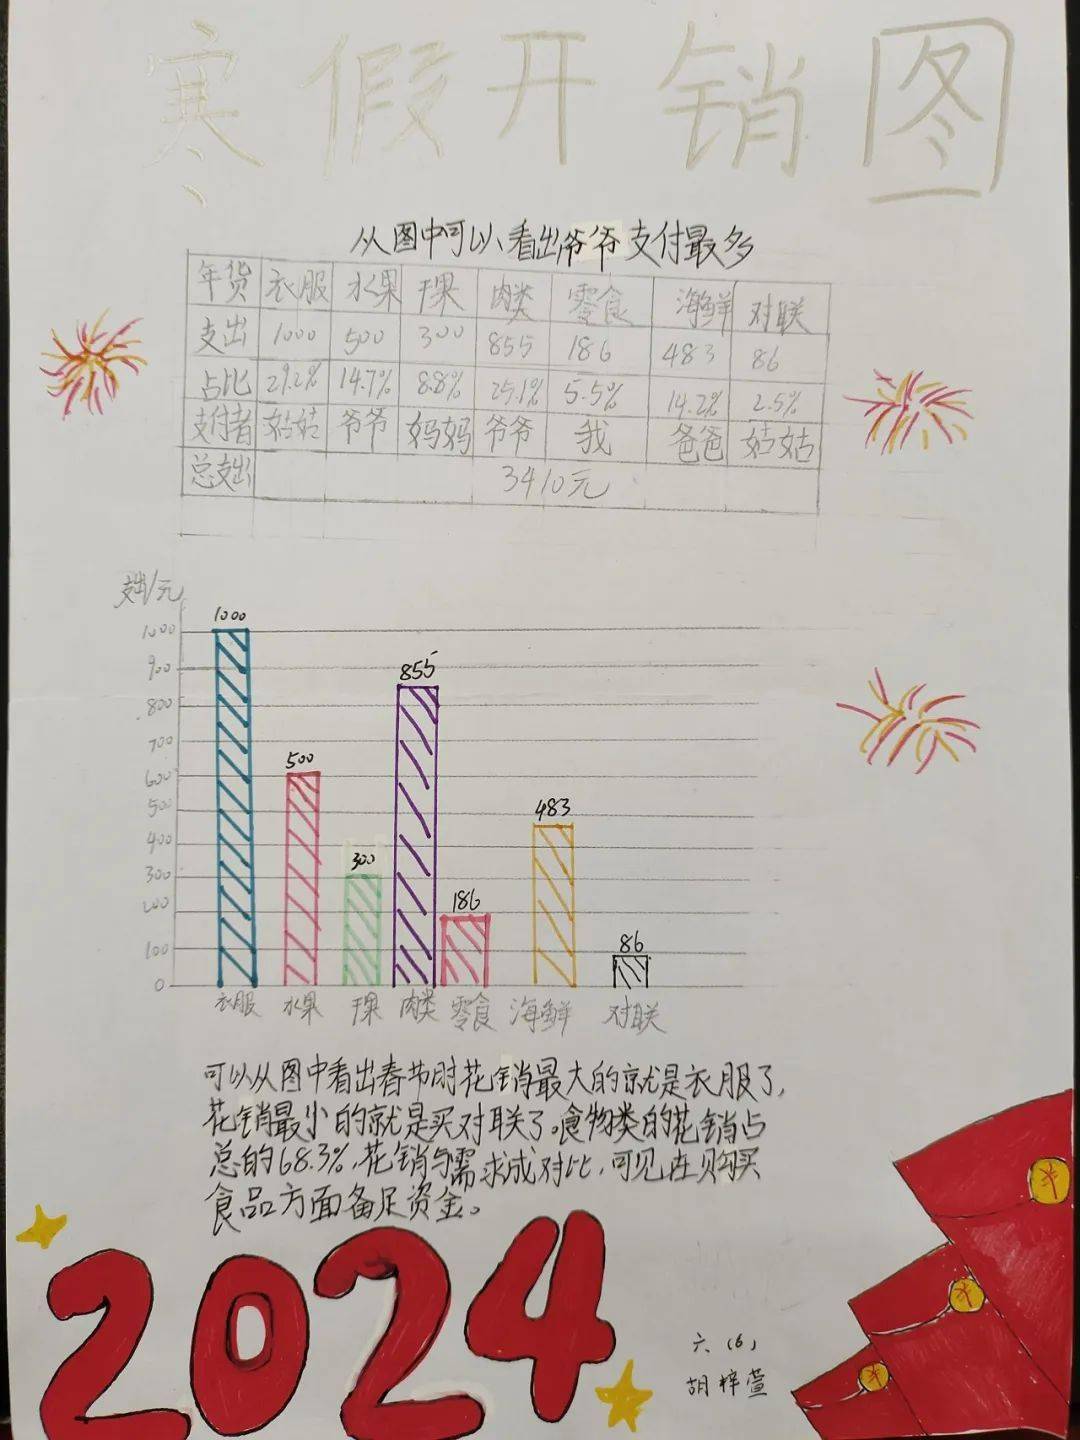 寒假开销图
从图中可以看出爷爷支付最多
年货 衣服 水果 干果 肉类 零食 海鲜 对联
支出 1000 500 300 855 186 483 86
占比 29.2% 14.7% 8.8% 25.1% 5.5% 14.2% 2.5%
支付者 姑姑 爷爷 妈妈 爷爷 我 爸爸 姑姑
总支出 3410元
支出/元
1000
1000
900
855
800
700
500
600
500
483
400
300
300
200
186
100
86
0
衣服 水果 干果 肉类 零食 海鲜 对联
可以从图中看出春节时花销最大的就是衣服了,
花销最小的就是买对联了。食物类的花销占
总的68.3%,花销与需求成对比,可见在购买
食品方面备足资金。
2024
六(6)
胡梓萱